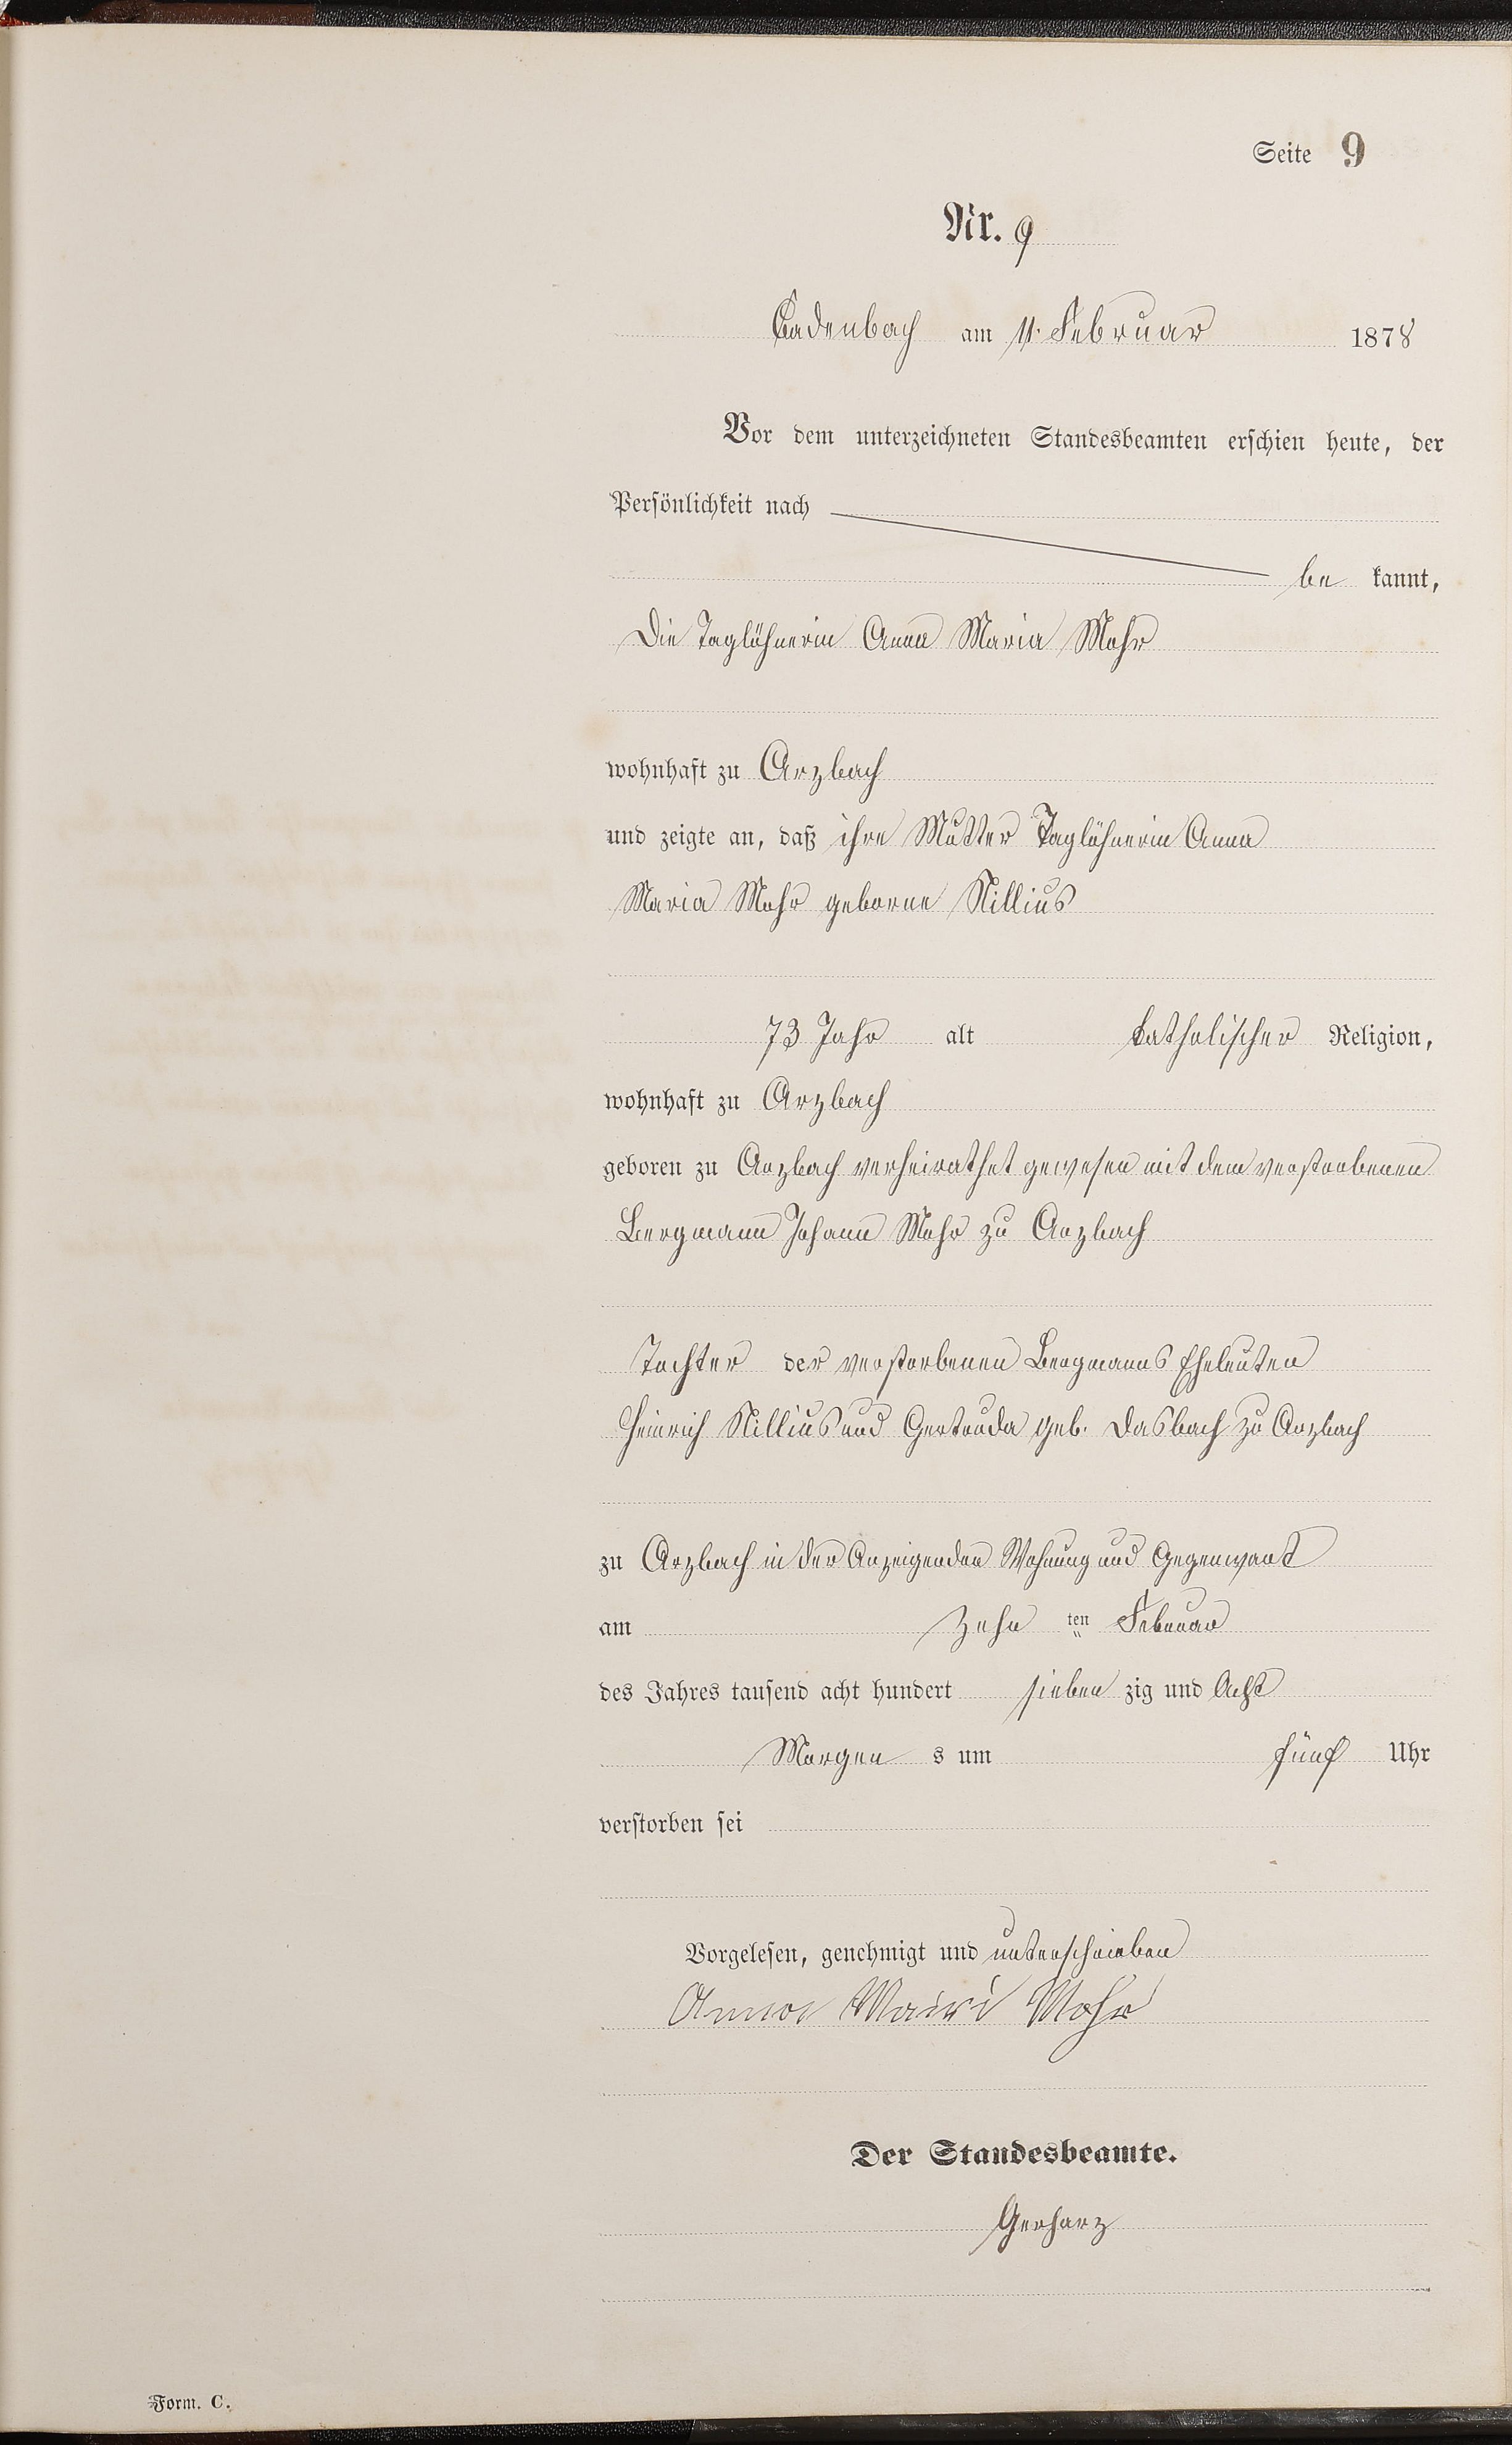 Seite 9
Nr. 9
Cadenbach am 11. Februar 1878
Vor dem unterzeichneten Standesbeamten erschien heute, der
Persönlichkeit nach
be kannt,
die Taglöhnerin Anna Maria Mohr
wohnhaft zu Arzbach
und zeigte an, daß ihre Mutter Taglöhnerin Anna
Maria Mohr geborne Nillius
73 Jahr alt katholischer Religion,
wohnhaft zu Arzbach
geboren zu Arzbach verheirathet gewesen mit dem verstorbenen
Bergmann Johann Mohr zu Arzbach
Tochter der verstorbenen Bergmanns Eheleuten
Heinrich Nillius und Gertruda geb. Dasbach zu Arzbach
zu Arzbach in der Anzeigenden Wohnung und Gegenwart
am Zehn ten Februar
des Jahres tausend acht hundert sieben zig und Acht
Morgen s um fünf Uhr
verstorben sei
Vorgelesen, genehmigt und unterschrieben
Anna Mairi Mohr
Der Standesbeamte.
Gerharz
Form. C.